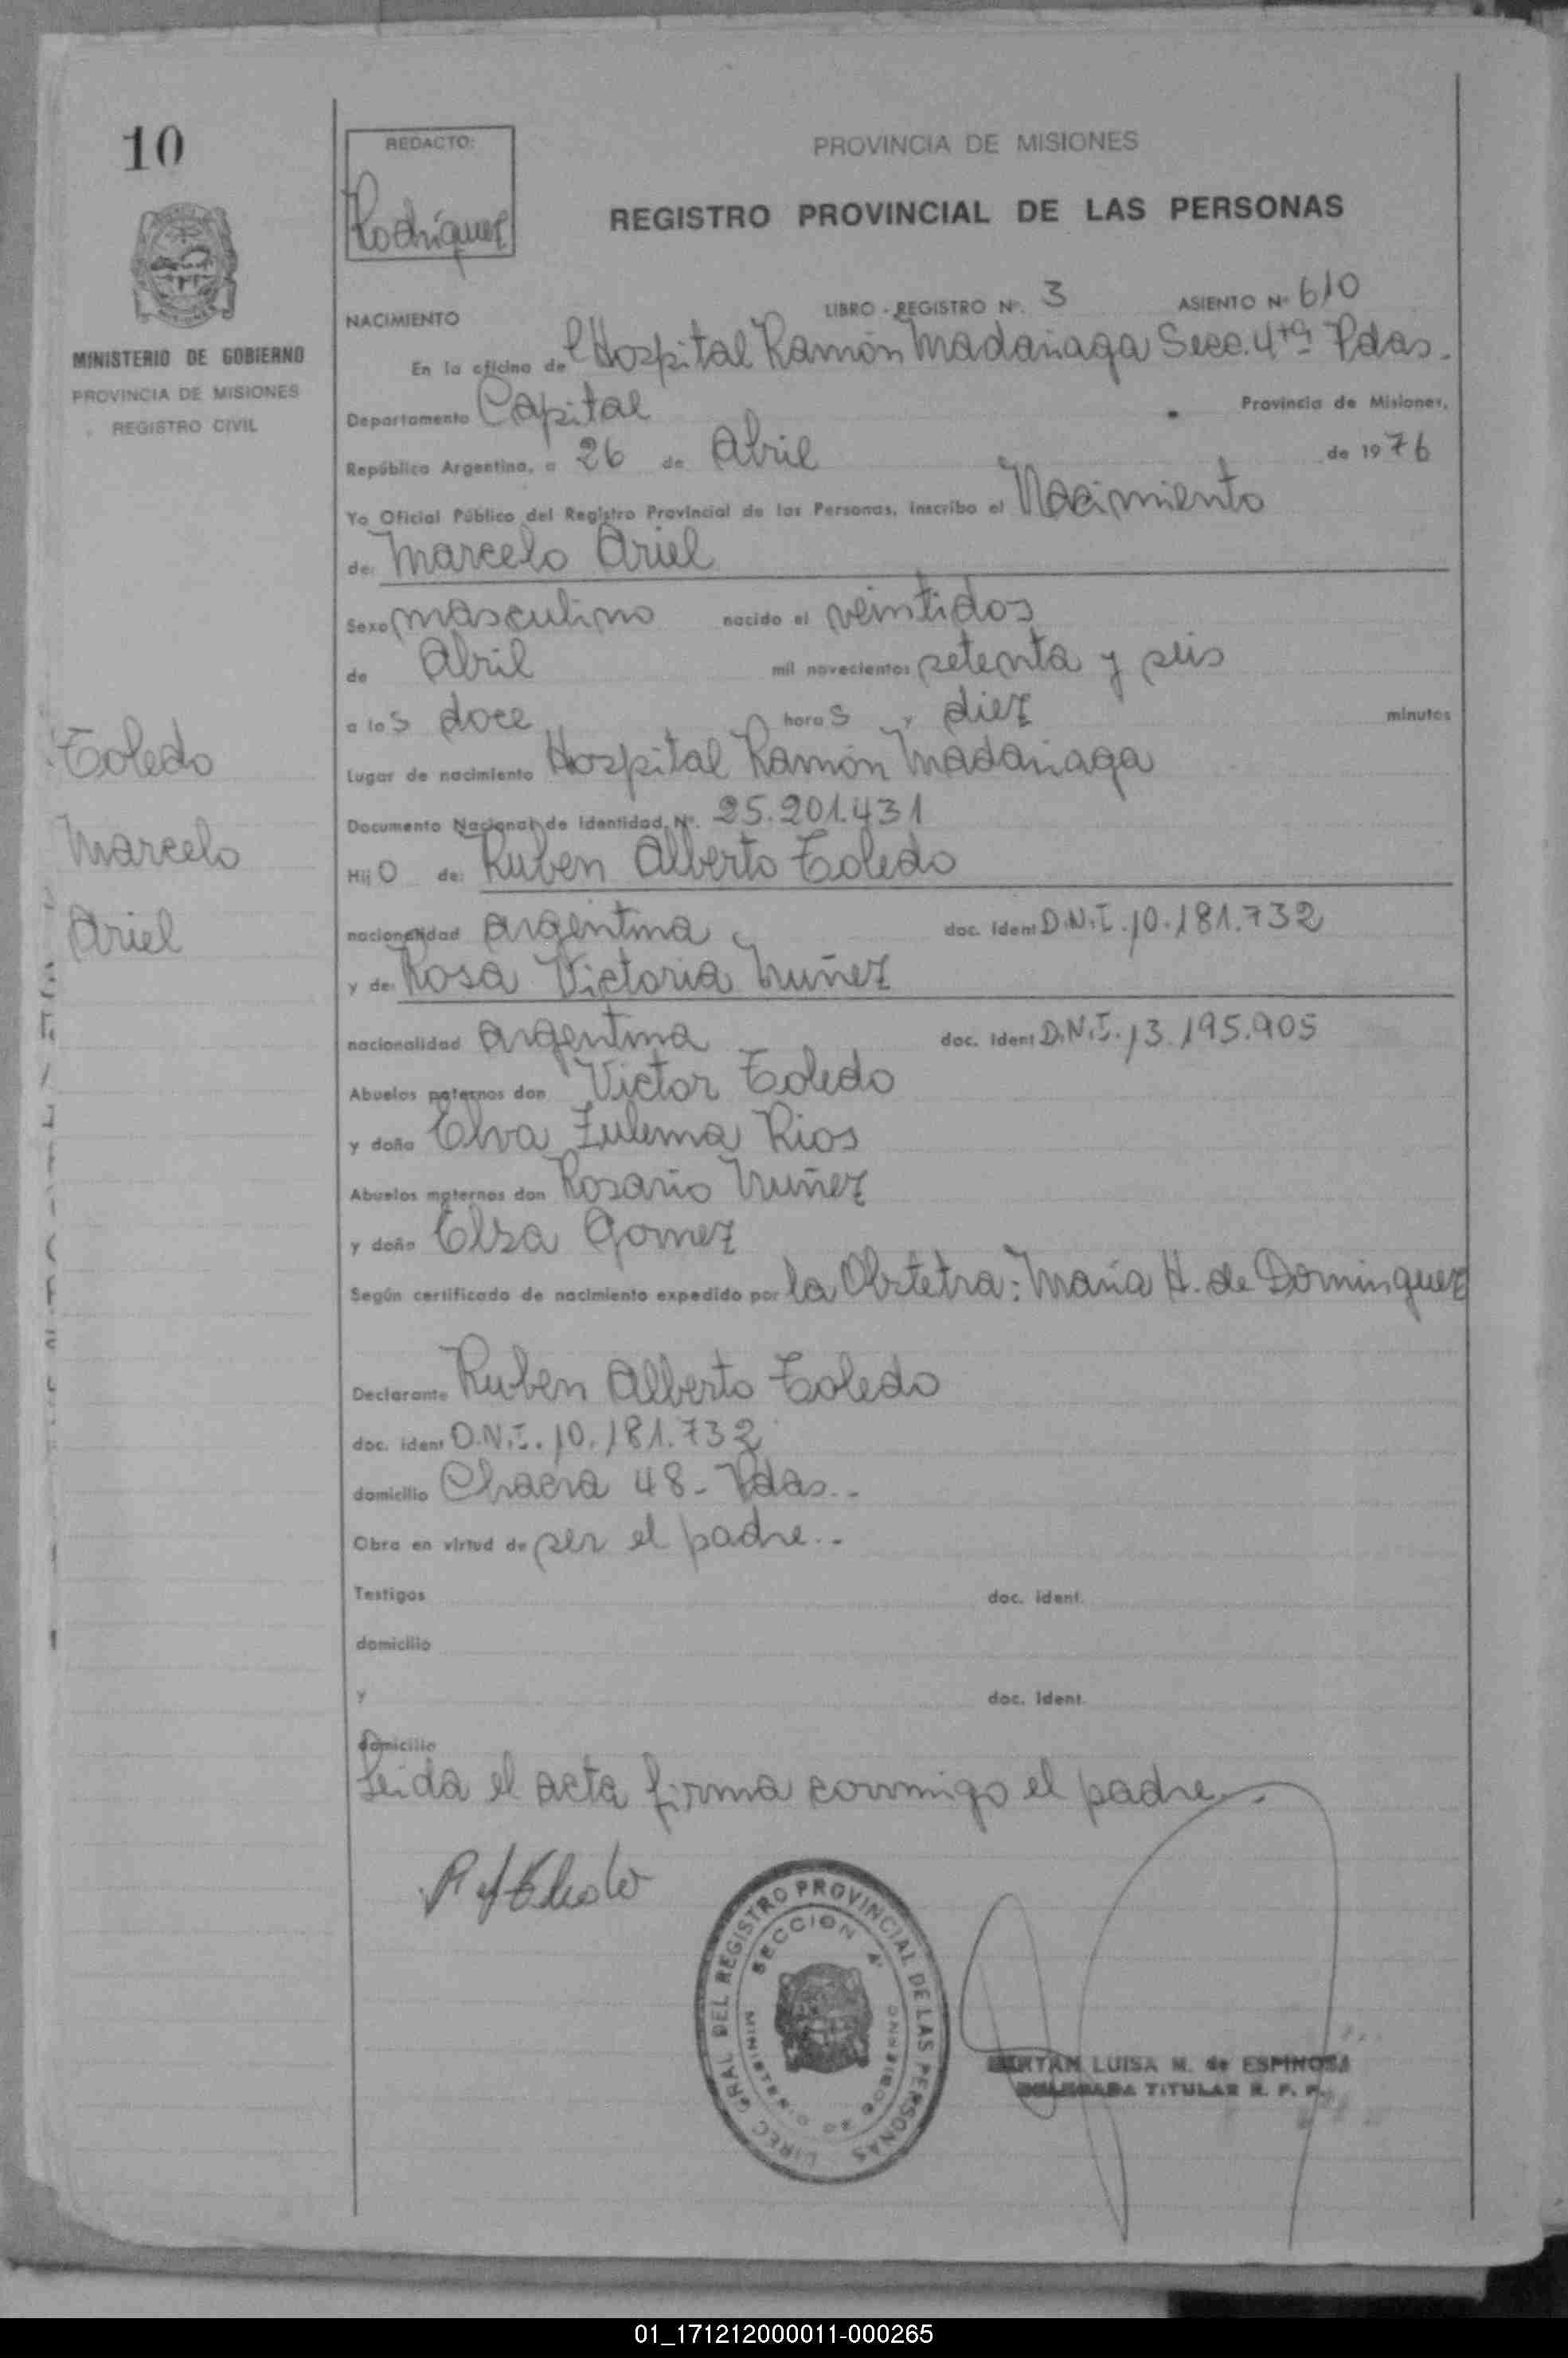 10
MINISTERIO DE GOBIERNO
PROVINCIA DE MISIONES
REGISTRO CIVIL
Toledo
Marcelo
Ariel
REDACTO:
Rodriguez
PROVINCIA DE MISIONES
REGISTRO PROVINCIAL DE LAS PERSONAS
NACIMIENTO LIBRO - REGISTRO Nº. 3 ASIENTO Nº 610
En la oficina del Hospital Ramón Madariaga Secc. 4ta Pdas.
Departamento Capital Provincia de Misiones,
República Argentina, a 26 de Abril de 1976
Yo Oficial Público del Registro Provincial de las Personas, inscribo el Nacimiento
de: Marcelo Ariel
Sexo masculino nacido el veintidos
de Abril mil novecientos setenta y seis
a las doce horas y diez minutos
Lugar de nacimiento Hospital Ramón Madariaga
Documento Nacional de Identidad, Nº. 25.201.431
Hijo de: Ruben Alberto Toledo
nacionalidad argentina doc. ident D.N.I. 10.181.732
y de: Rosa Victoria Nuñez
nacionalidad argentina doc. ident D.N.I. 13.195.905
Abuelos paternos don Victor Toledo
y doña Elva Zulema Rios
Abuelos maternos don Rosario Nuñez
y doña Elsa Gomez
Según certificado de nacimiento expedido por la Obstetra: Maria H. de Dominguez
Declarante Ruben Alberto Toledo
doc. ident D.N.I. 10.181.732
domicilio Chacra 48 - Pdas..-
Obra en virtud de ser el padre..-
Testigos doc. ident.
domicilio
y doc. ident.
domicilio
Leida el acta firma conmigo el padre.-
DIREC. GRAL DEL REGISTRO PROVINCIAL DE LAS PERSONAS
SECCION 4ª
MINISTERIO DE GOBIERNO
LUISA M. de ESPINOSA
DELEGADA TITULAR R. P. P.
01_171212000011-000265